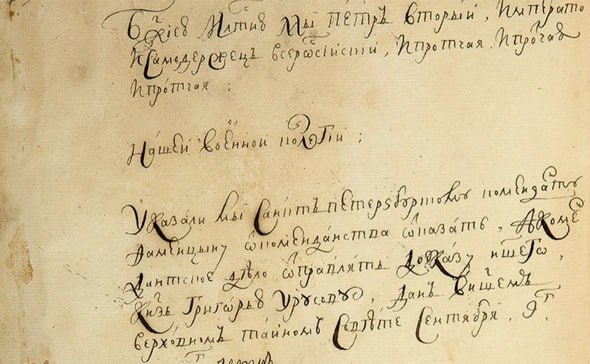 Бжїею млтїю мы пётръ вторый, императо
и самодержецъ всеросїйскїй, ипротчая ипротчая
ипротчая:
нашей военной колегїи:
Указали мы санктъ петерзбургскому коменданту
от комендантства отказать, а коме
дантское дѣло отправлять доуказу нашего,
князь григорью урусову, данъ внашемъ
верховномъ тайномъ совѣте сентября, 9г